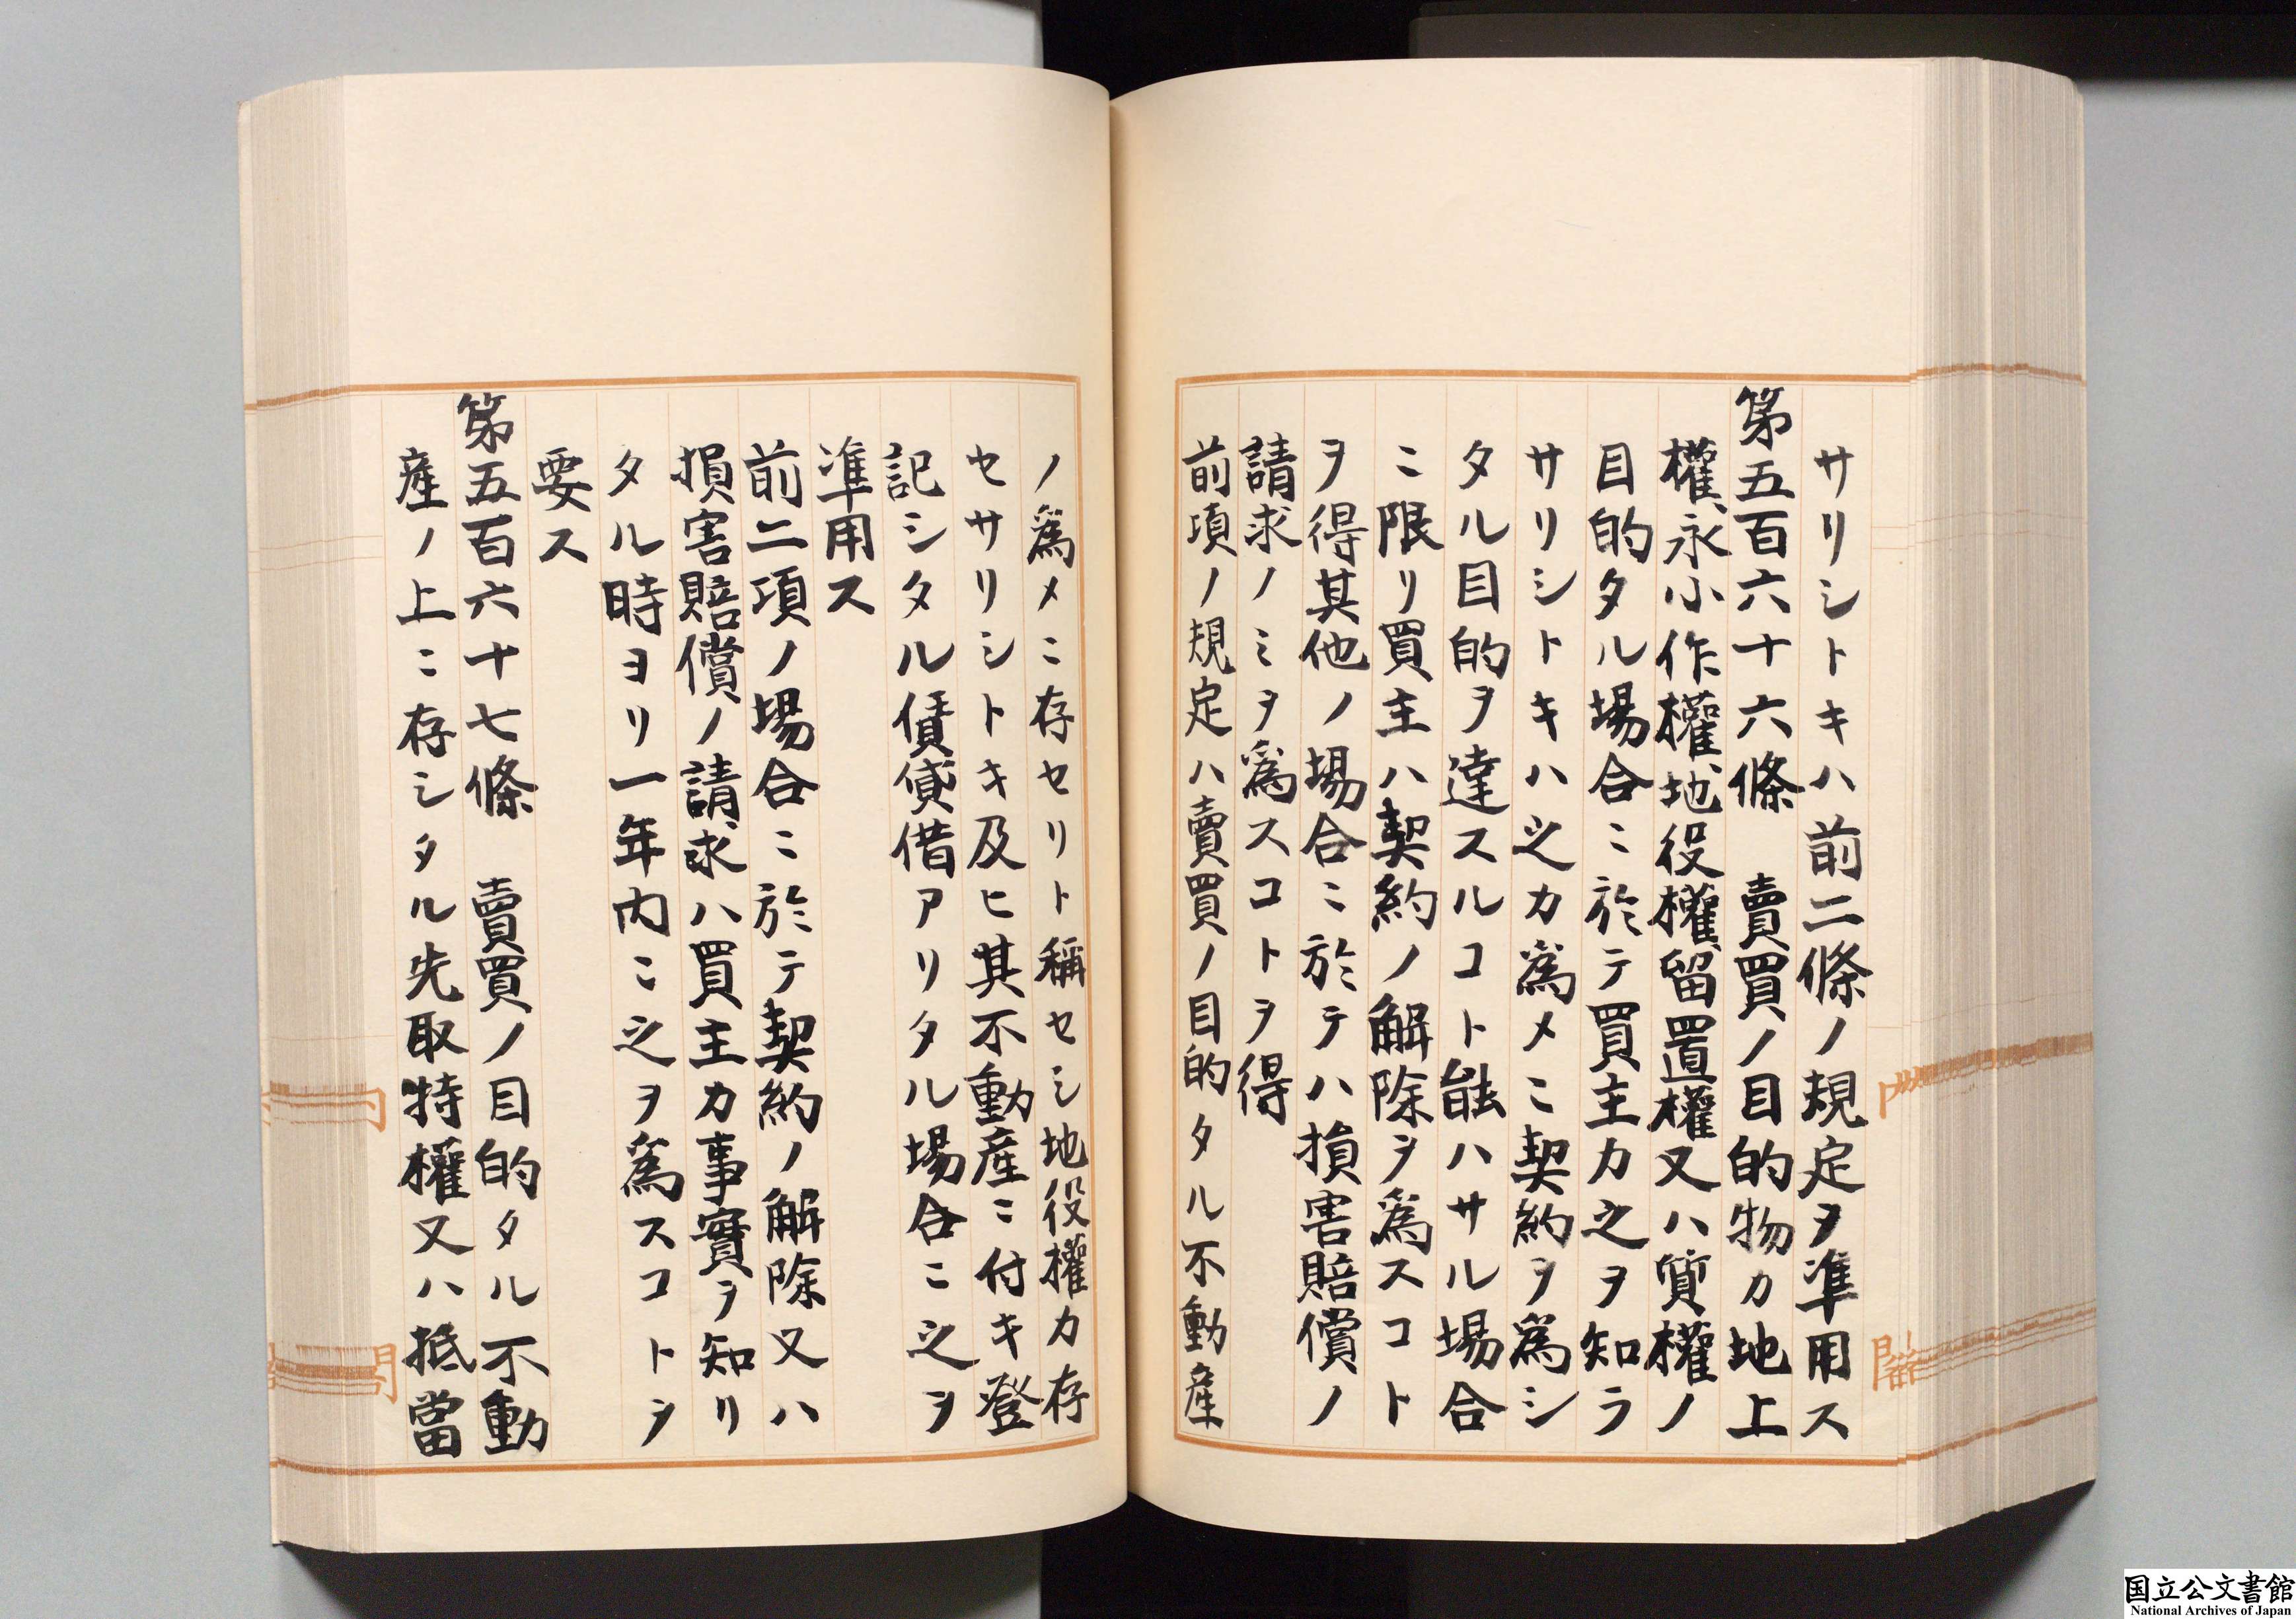 サリシトキハ前二條ノ規定ヲ準用ス
第五百六十六條　賣買ノ目的物カ地上
權、永小作權、地役權、留置權又ハ質權ノ
目的タル場合ニ於テ買主カ之ヲ知ラ
サリシトキハ之カ爲メニ契約ヲ爲シ
タル目的ヲ達スルコト能ハサル場合
ニ限リ買主ハ契約ノ解除ヲ爲スコト
ヲ得其他ノ場合ニ於テハ損害賠償ノ
請求ノミヲ爲スコトヲ得
前項ノ規定ハ賣買ノ目的タル不動産
ノ爲メニ存セリト稱セシ地役權カ存
セサリシトキ及ヒ其不動産ニ付キ登
記シタル賃貸借アリタル場合ニ之ヲ
準用ス
前二項ノ場合ニ於テ契約ノ解除又ハ
損害賠償ノ請求ハ買主カ事實ヲ知リ
タル時ヨリ一年内ニ之ヲ爲スコトヲ
要ス
第五百六十七條　賣買ノ目的タル不動
産ノ上ニ存シタル先取特權又ハ抵當
国立公文書館
National Archives of Japan